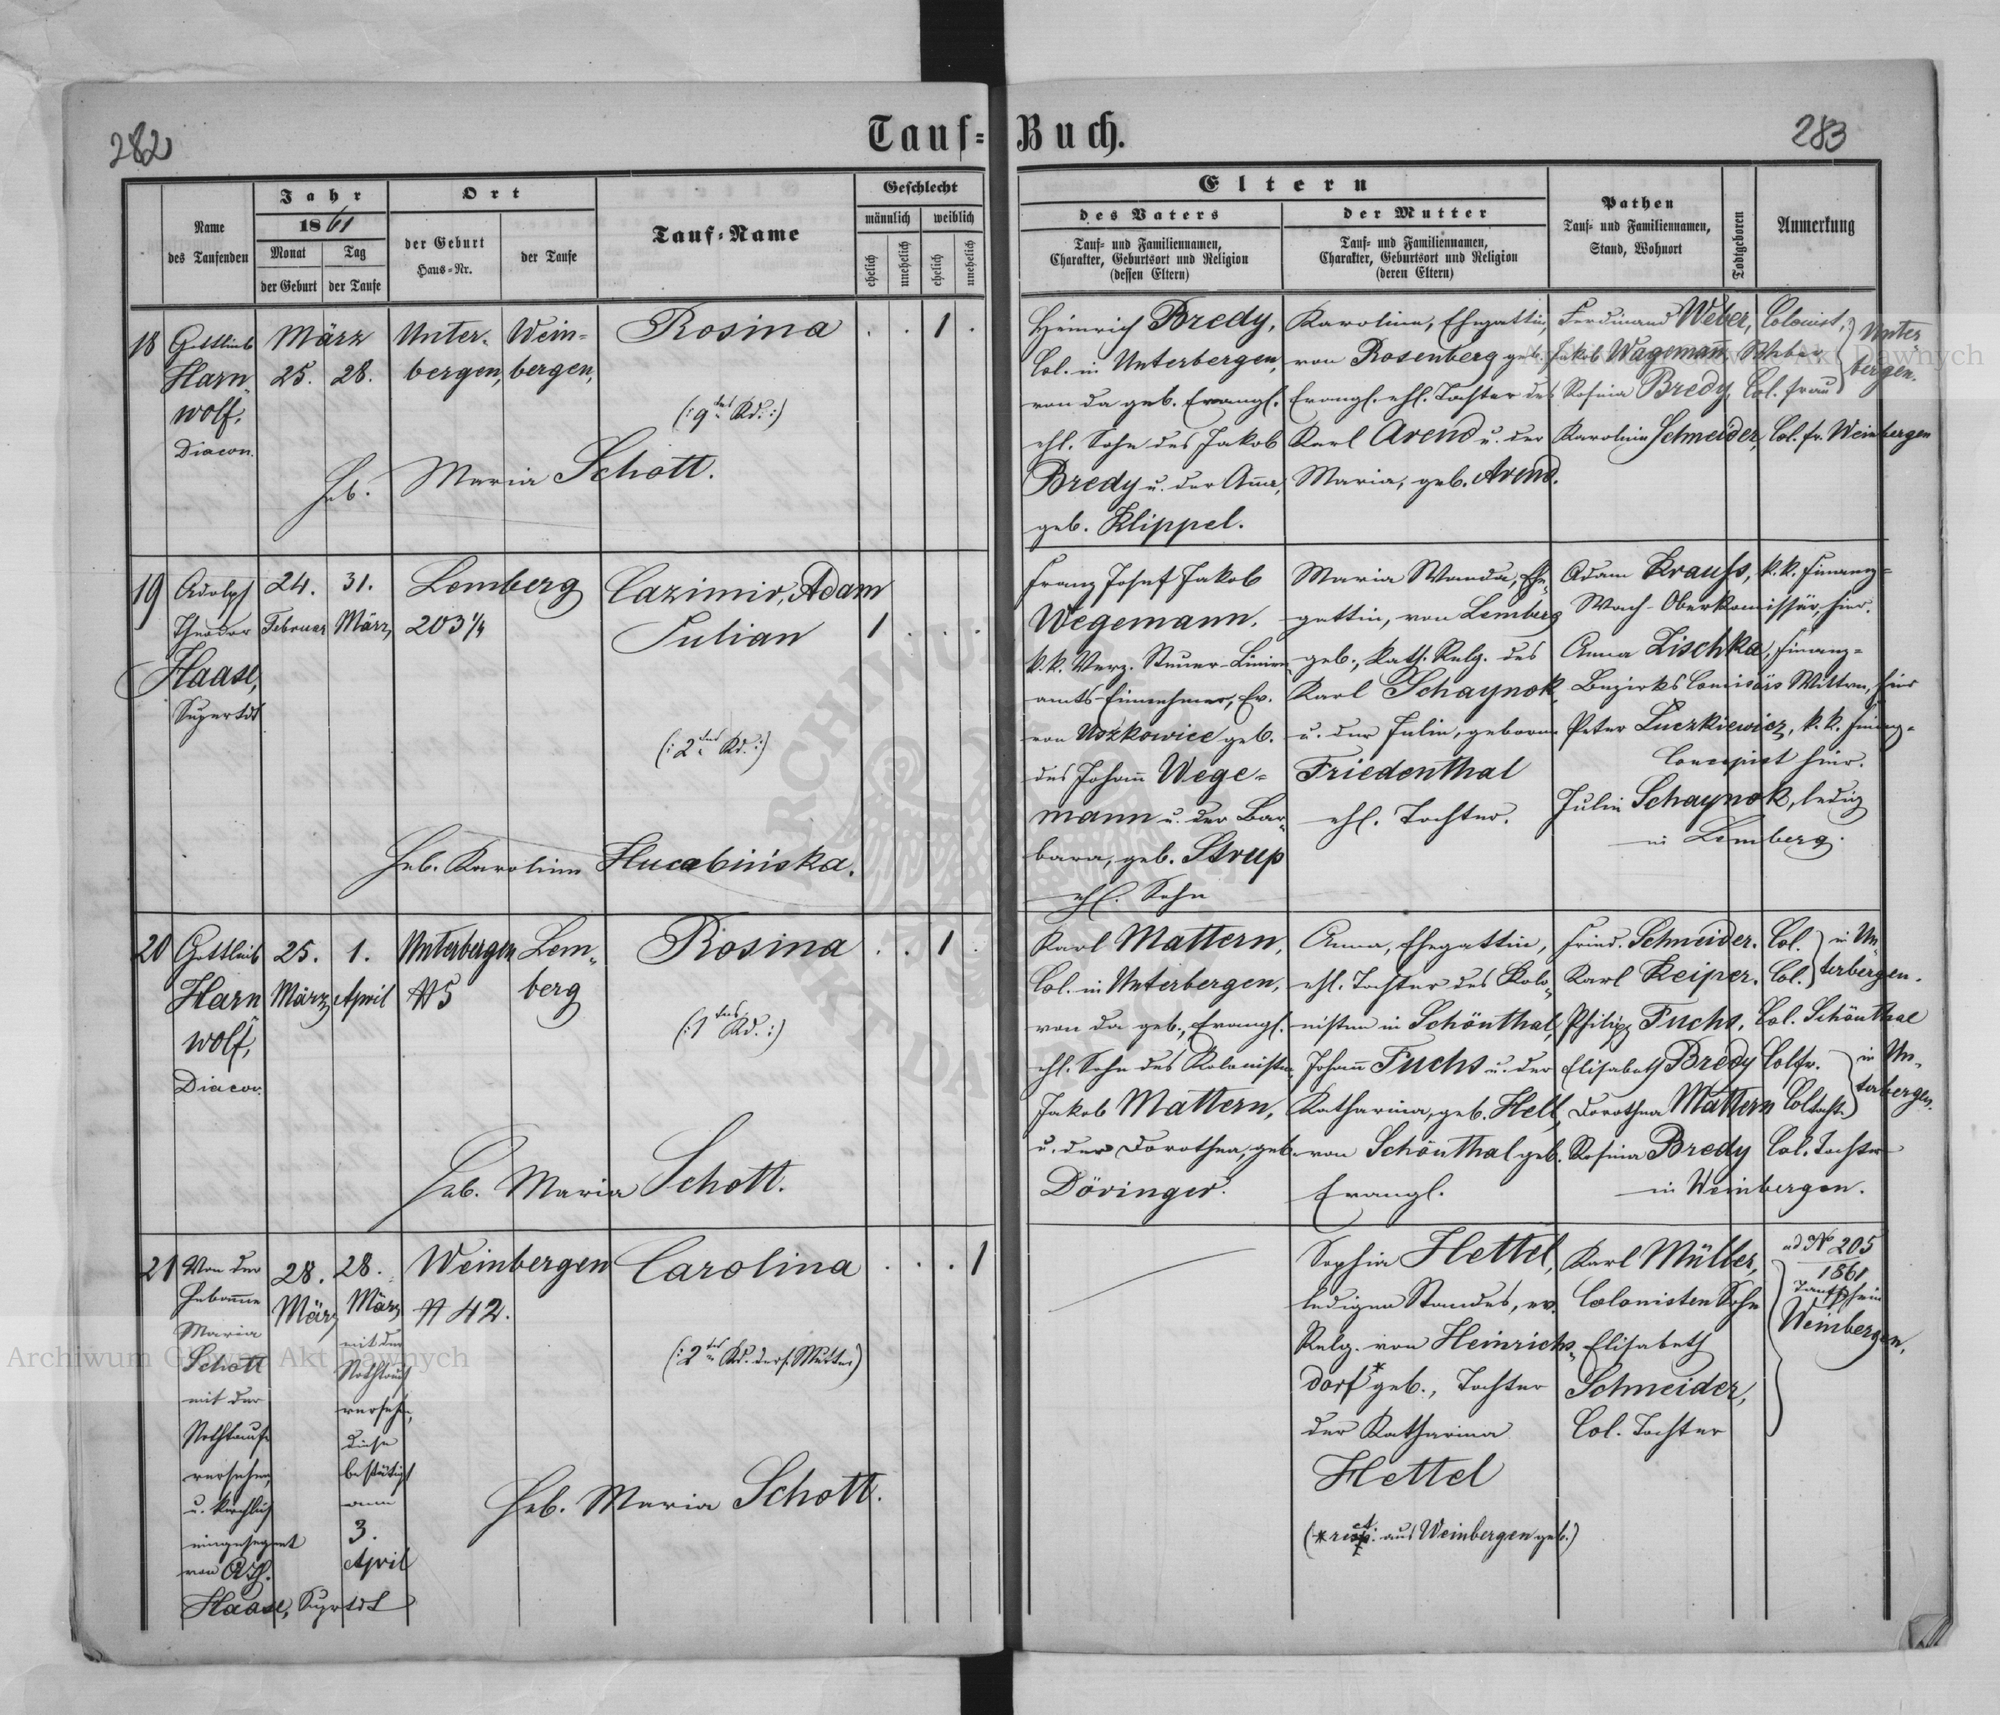 282
Tauf-Buch.
283
Name des Taufenden
Jahr
1861
Monat der Geburt
Tag der Taufe
Ort
der Geburt Haus-Nr.
der Taufe
Tauf-Name
Geschlecht
männlich
weiblich
ehelich
unehelich
ehelich
unehelich
Eltern
des Vaters
Tauf- und Familiennamen,
Charakter, Geburtsort und Religion
(dessen Eltern)
der Mutter
Tauf- und Familiennamen,
Charakter, Geburtsort und Religion
(deren Eltern)
Pathen
Tauf- und Familiennamen,
Stand, Wohnort
Todtgeboren
Anmerkung
18
Gottlieb
Harn-
wolf,
Diacon.
März
25. 28.
Unter-
bergen,
Wein-
bergen,
Rosina
(:9tes Kd.:)
1
Heb. Maria Schott.
Heinrich Bredy,
Col. in Unterbergen,
von da geb. Evangl.
ehl. Sohn des Jakob
Bredy u. der Anna,
geb. Klippel.
Karolina, Ehegattin,
von Rosenberg geb.
Evangl. ehl. Tochter des
Karl Arend u. der
Maria, geb. Arend.
Ferdinand Weber, Colonist,
Jakob Wagemann
Rosina Bredy, Col. frau
Unter-
bergen.
Karolina Schmeider, Col. fr. Weinbergen
19
Adolph
Theodor
Haase,
Suprtdt
24.
Februar
31.
März
Lemberg
203 1/4
Cazimir, Adam
Julian
(:2tes Kd.:)
1
Heb. Karolina Hucabińska.
Franz Josef Jakob
Wegemann,
k.k. Verz. Steuer-Linien-
amts-Einnehmer, Ev.
von Uszkowice geb.
des Johann Wege-
mann u. der Bar-
bara, geb. Strup
ehl. Sohn
Maria Wanda, Ehe-
gattin, von Lemberg
geb., kath. Relg. des
Karl Schaynok
u. der Julia, geborne
Friedenthal
ehl. Tochter.
Adam Krauss, k.k. Finanz-
Wach-Oberkommissär, hier.
Anna Zischka, Finanz-
Bezirks Commissärs Wittwe, hier
Peter Luczkiewicz, k.k. Finanz-
Concipist hier.
Julia Schaynok, ledig
in Lemberg.
20
Gottlieb
Harn-
wolf,
Diacon.
25.
März
1.
April
Unterbergen
#5
Lem-
berg
Rosina
(:1tes Kd.:)
1
Heb. Maria Schott.
Karl Mattern,
Col. in Unterbergen,
von da geb., Evangl.
ehl. Sohn des Kolonisten
Jakob Mattern,
u. der Dorothea, geb.
Döringer.
Anna, Ehegattin,
ehl. Tochter des Kolo-
nisten in Schönthal,
Johann Fuchs u. der
Katharina, geb. Hell,
von Schönthal geb.
Evangl.
Fried. Schmeider. Col.
Karl Keiper. Col.
in Un-
terbergen.
Philipp Fuchs, Col. Schönthal
Elisabeth Bredy Colfr.
Dorothea Mattern Coltocht.
in Un-
terbergen.
Rosina Bredy Col. Tochter
in Weinbergen.
21
Von der
Hebamme
Maria
Schott
mit der
Nothtaufe
versehen,
u. kirchlich
eingesegnet
von A. Th.
Haase, Suprtdt
28.
März
28.
März
mit der
Nothtauf
versehen,
diese
bestätigt
am
3.
April
Weinbergen
#42.
Carolina
(:2tes Kd. ders. Mutter)
1
Heb. Maria Schott.
Sophia Hettel,
ledigen Standes, ev.
Relg. von Heinrichs-
dorf* geb., Tochter
der Katharina
Hettel
aus Weinbergen geb.)
Karl Müller,
Colonisten Sohn
Elisabeth
Schmeider,
Col. Tochter
ad No 205
1861
Taufschein
Weinbergen.
Archiwum Główne Akt Dawnych
Archiwum Główne Akt Dawnych